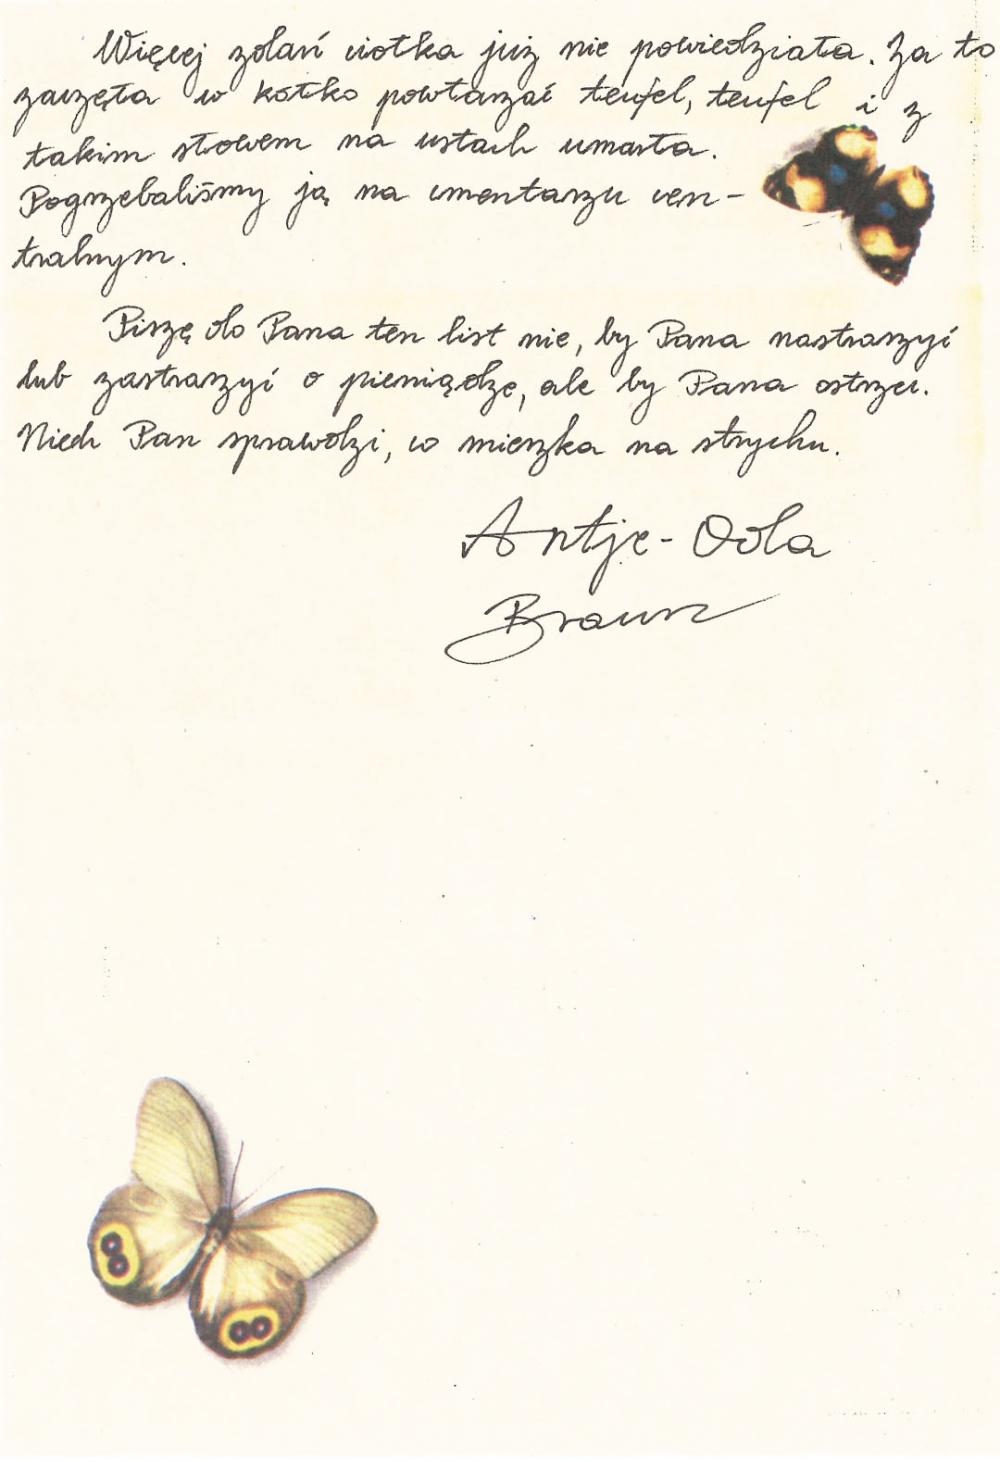 Więcej zdań ciotka już nie powiedziała. Za to
zaczęła w kółko powtarzać teufel, teufel i z
takim słowem na ustach umarła.
Pogrzebaliśmy ją na cmentarzu cen-
tralnym.
Piszę do Pana ten list nie, by Pana nastraszyć
lub zastraszyć o pieniądze, ale by Pana ostrzec.
Niech Pan sprawdzi, co mieszka na strychu.
Antje-Oda
Braun